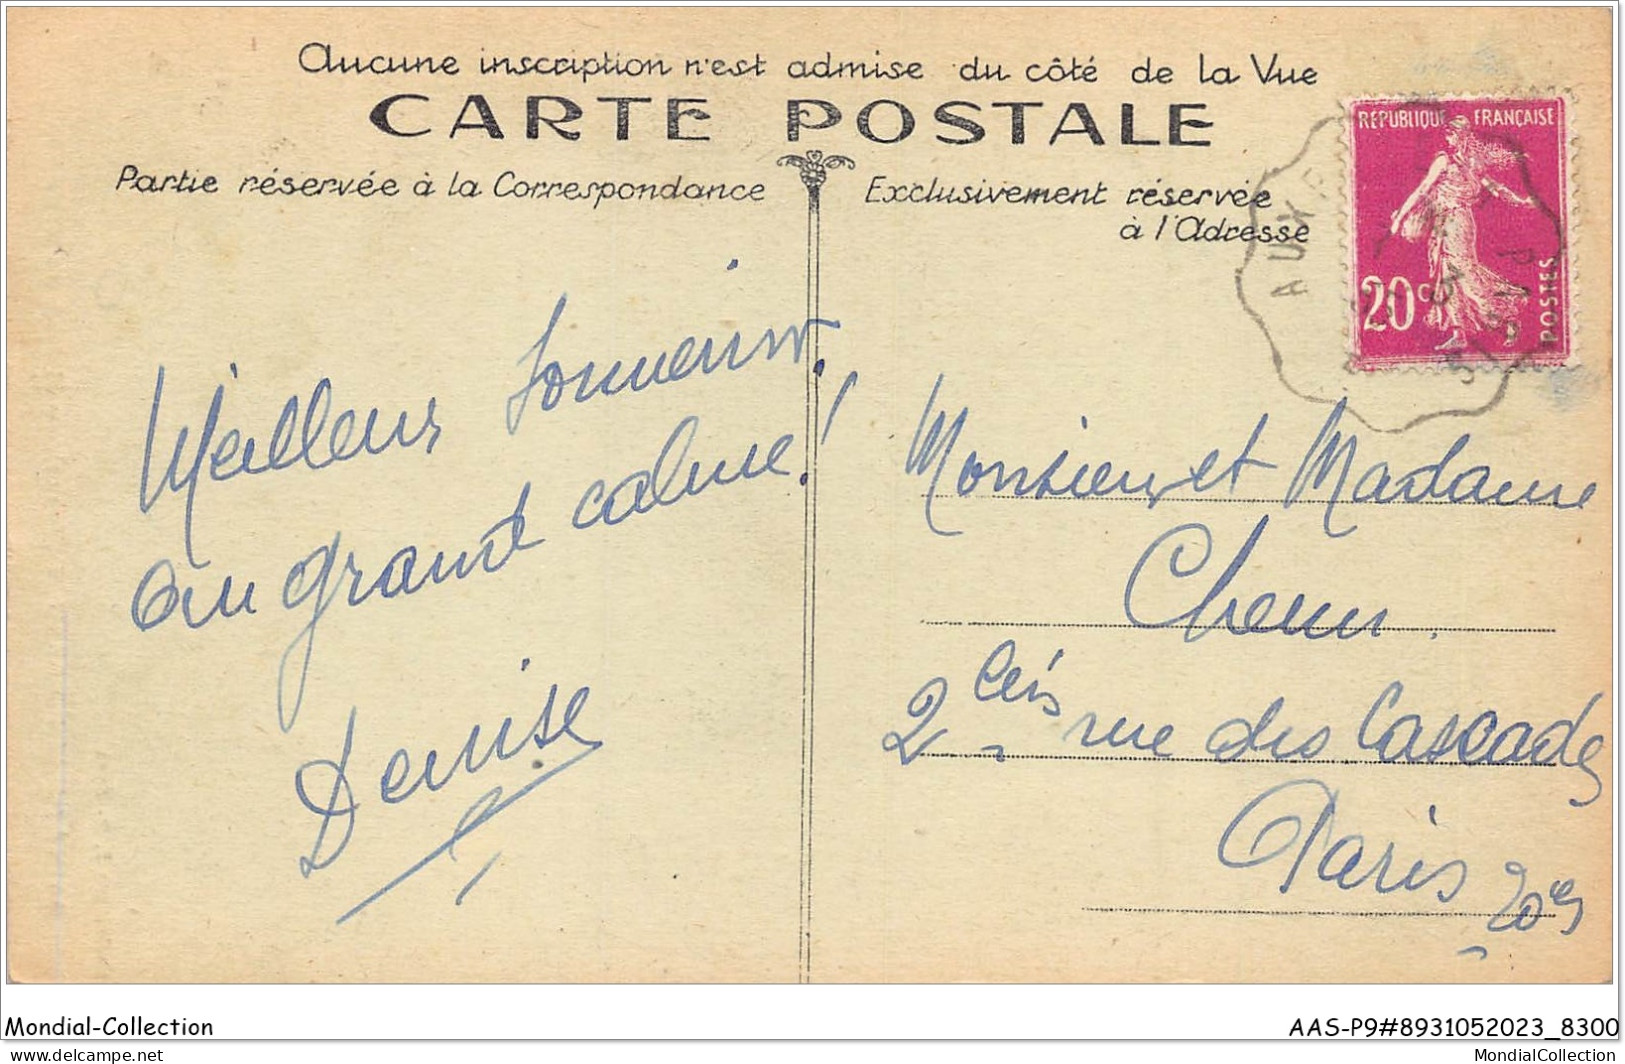 Aucune inscription n'est admise du côté de la Vue
CARTE POSTALE
Partie réservée à la Correspondance
Exclusivement réservée
à l'Adresse
RÉPUBLIQUE FRANÇAISE
20c
POSTES
AUX
Meilleur souvenir.
au grand calme!
Denise
Monsieur et Madame
2 bis rue des Cascades
Paris 20es
Mondial-Collection
AAS-P9#8931052023_8300
delcampe.net
MondialCollection